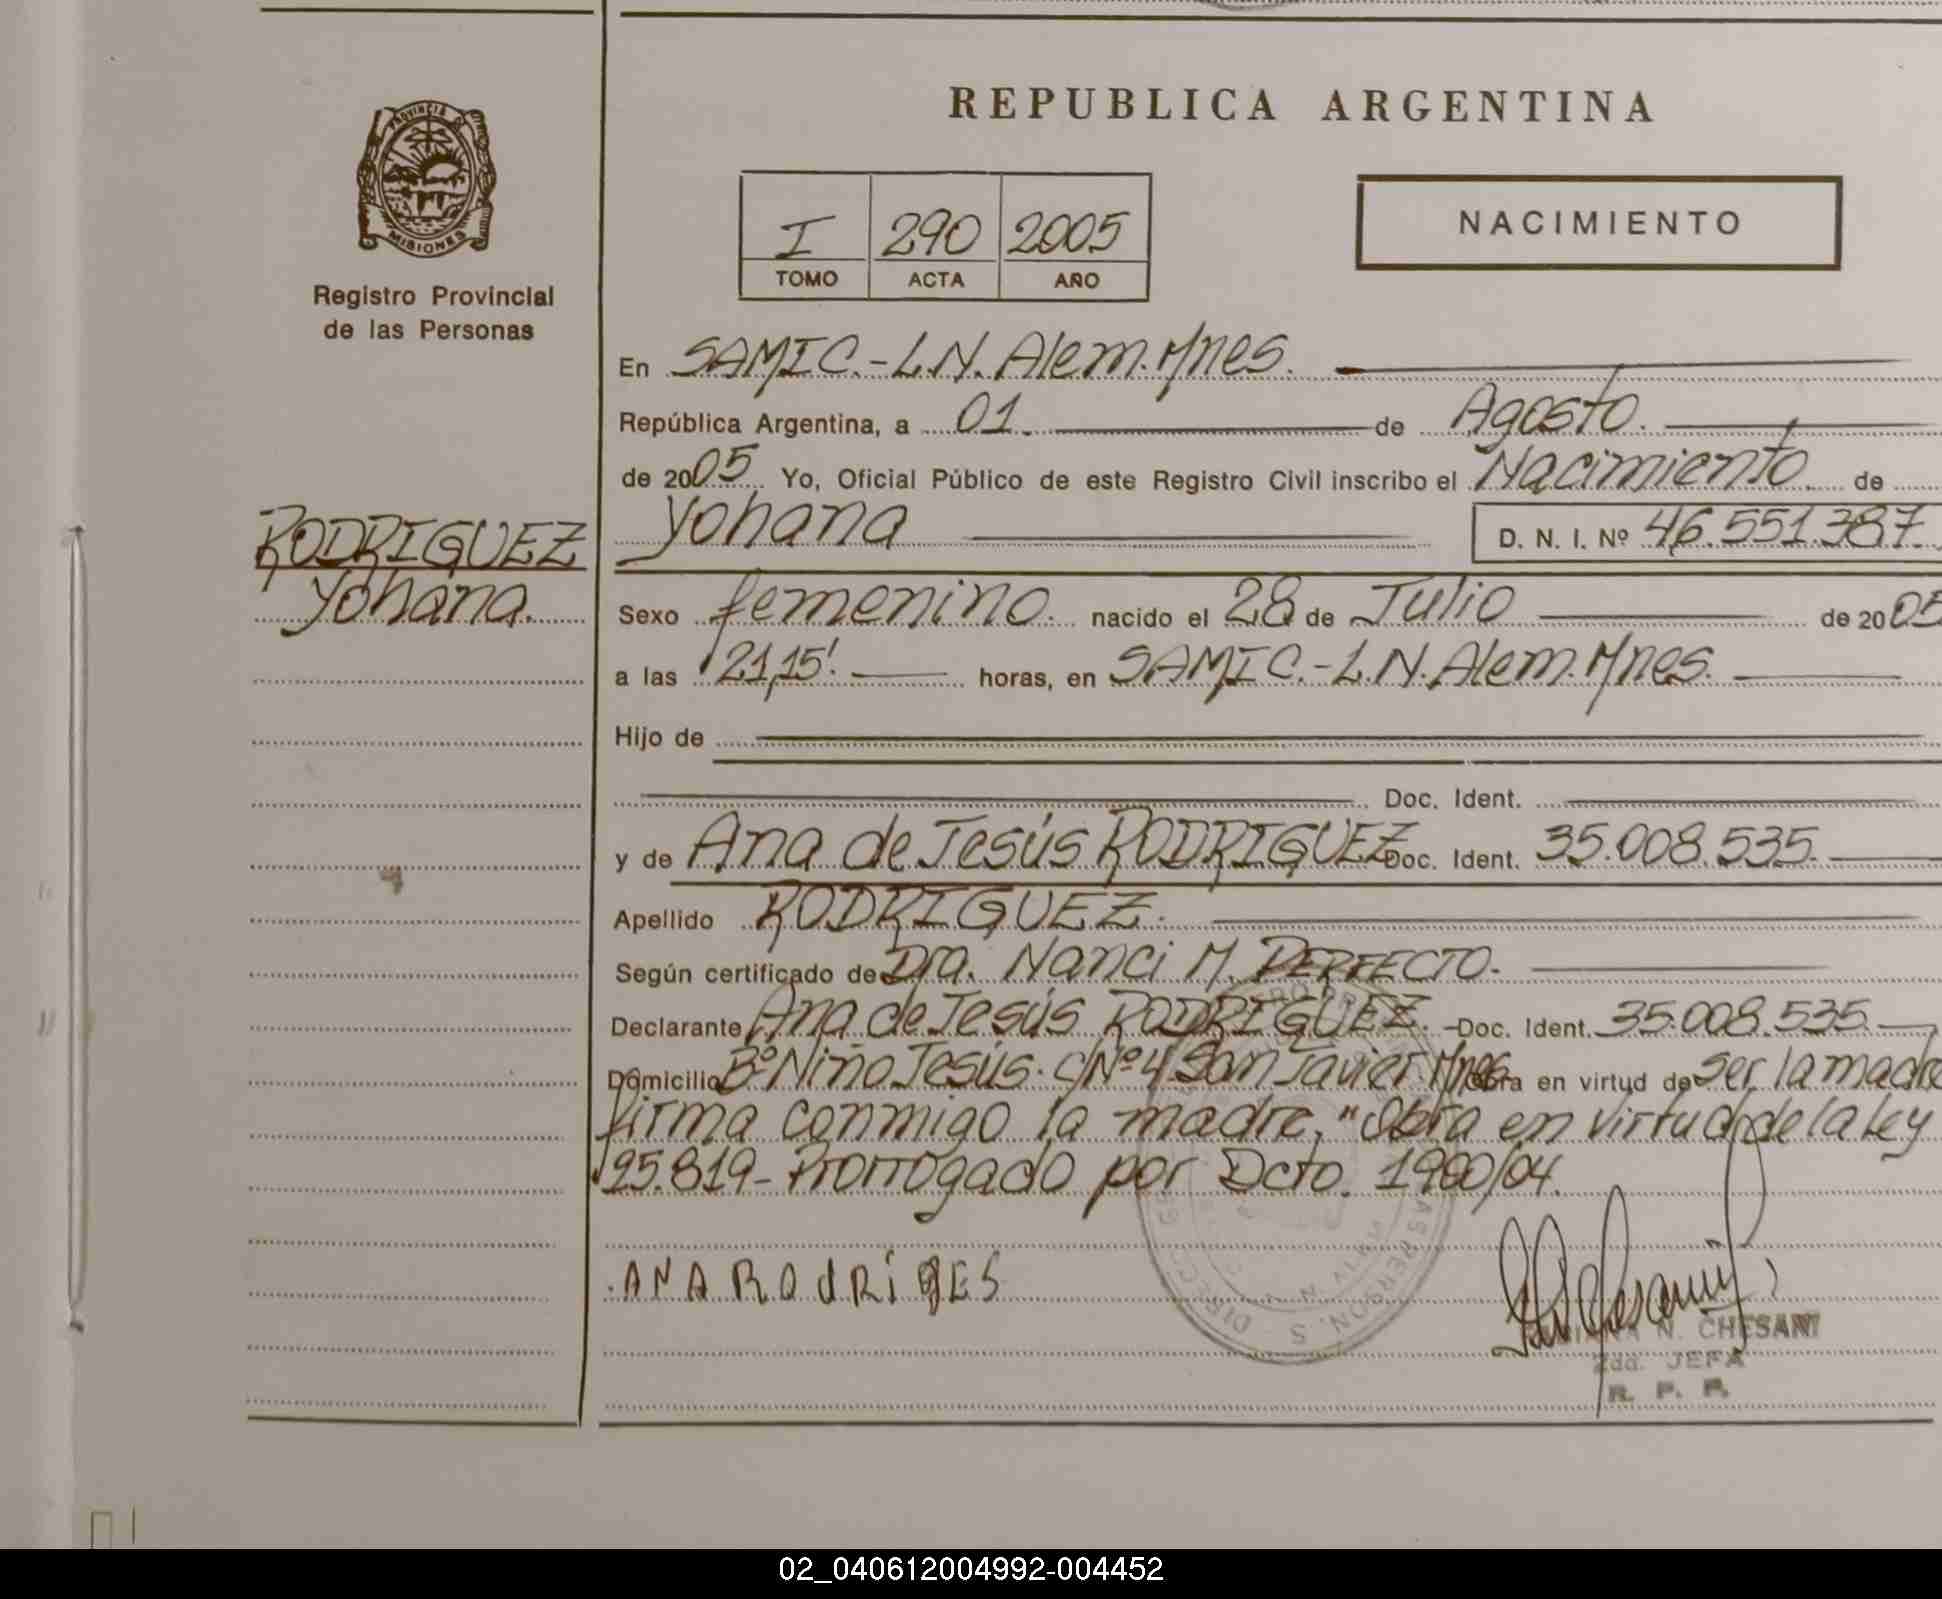 REPUBLICA ARGENTINA
PROVINCIA DE
MISIONES
Registro Provincial
de las Personas
I 290 2005
TOMO ACTA AÑO
NACIMIENTO
En SAMIC.-L.N. Alem. Mnes.
República Argentina, a 01 de Agosto.
de 2005 Yo, Oficial Público de este Registro Civil inscribo el Nacimiento. de
RODRIGUEZ
Yohana.
Yohana D. N. I. Nº 46.551.387.
Sexo femenino. nacido el 28 de Julio de 2005
a las 21,15'. horas, en SAMIC.-L.N. Alem. Mnes.
Hijo de
Doc. Ident.
y de Ana de Jesús RODRIGUEZ Doc. Ident. 35.008.535.
Apellido RODRIGUEZ.
Según certificado de Dra. Nanci M. PERFECTO.
Declarante Ana de Jesús RODRIGUEZ. Doc. Ident. 35.008.535
Domicilio Bº Niño Jesús. C/Nº 4 San Javier Mnes Obra en virtud de ser la madre
firma conmigo la madre, "Obra en virtud de la ley
25.819- Prorrogado por Dcto. 1900/04.
ANA RodRiGES
N. CHESANI
2da. JEFA
R. P. P.
02_040612004992-004452